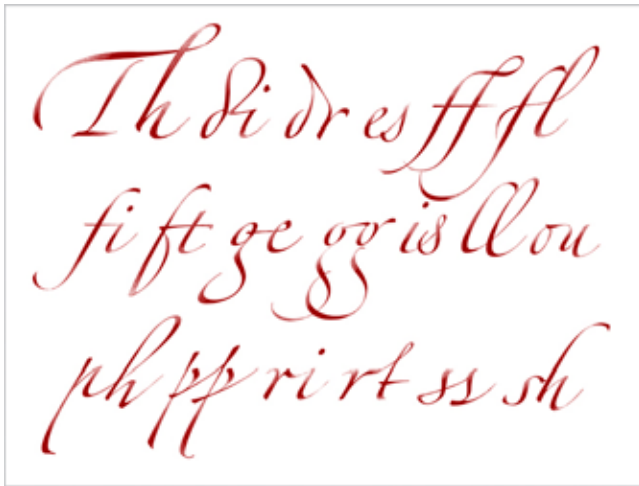 Th di dr es ff fl
fi ft ge gg is ll ou
ph pp ri rt ss sh